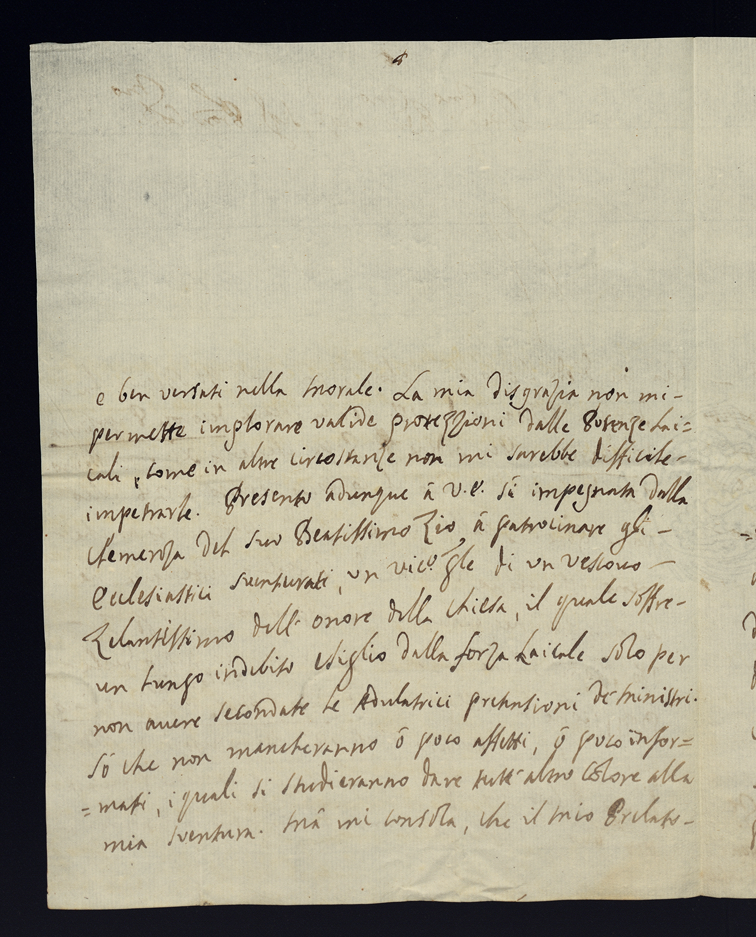 e ben versati nella Morale. La mia disgrazia non mi-
permette implorare valide protezzioni dalle Potenze Lai=
cali, come in altre circostanze non mi sarebbe difficile-
impetrarle. Presento adunque à V.E. sì impegnata dalla
Clemenza del suo Beatissimo Zio, à patrocinare gli-
Ecclesiastici sventurati, un vic.º gñle di un vescovo-
Zelantissimo dell' onore della Chiesa, il quale soffre-
un lungo indebito esiglio dalla forza Laicale solo per
non avere secondate le Adulatrici pretensioni de' Ministri.
Sò che non mancheranno ò poco affetti, ò poco infor=
=mati, i quali si studieranno dare tutt' altro colore alla
mia sventura. Mà mi consola, che il mio Prelato-